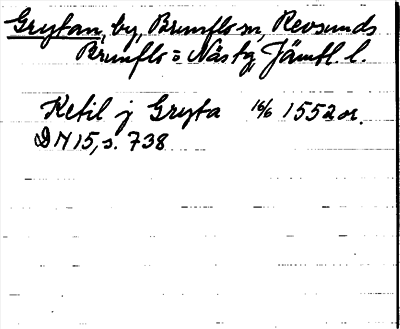 Grytan, by, Brunflo sn, Revsunds
Brunflo = Näs tg, Jämtl. l.
Ketil j Gryta 16/6 1552 or.
DN 15, s. 738